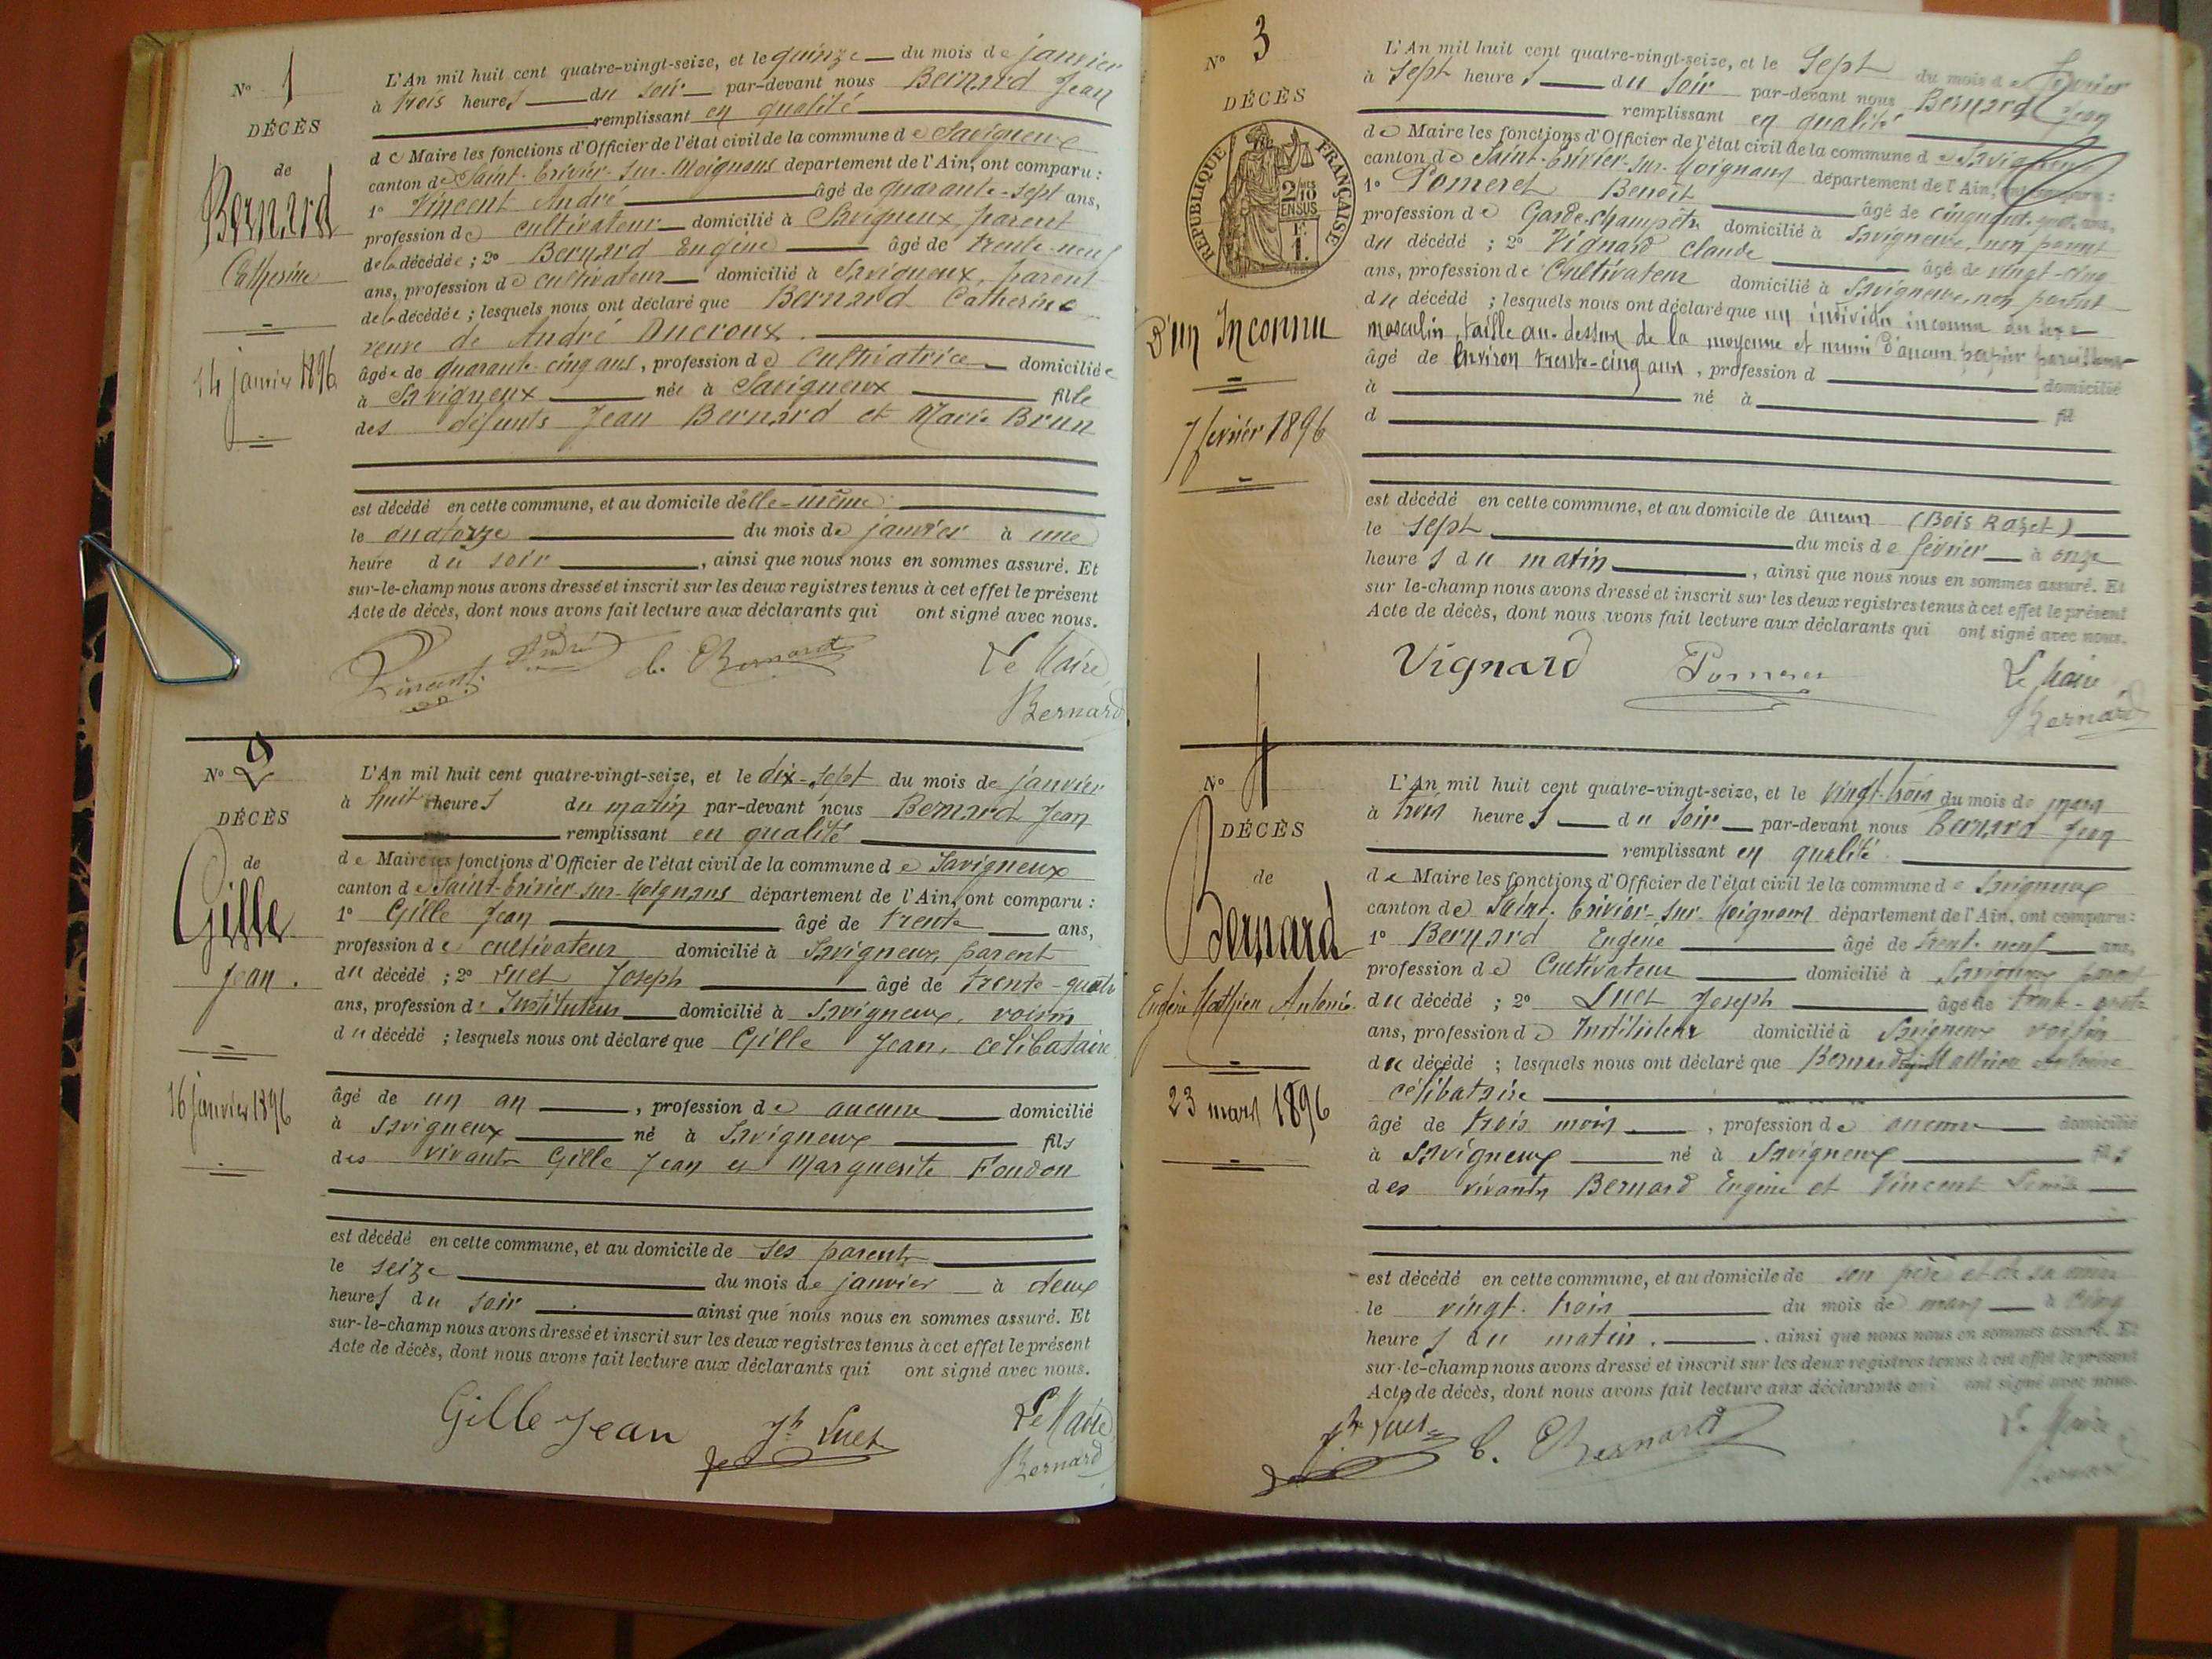 N° 1
DÉCÈS
de
Bernard
Catherine
14 janvier 1896
L'An mil huit cent quatre-vingt-seize, et le quinze du mois de janvier
à trois heures du soir par-devant nous Bernard Jean
remplissant en qualité
de Maire les fonctions d'Officier de l'état civil de la commune de Savigneux
canton de Saint-Trivier-sur-Moignans département de l'Ain, ont comparu :
1° Vincent André âgé de quarante-sept ans,
profession de cultivateur domicilié à Savigneux, parent
de la décédée ; 2° Bernard Eugène âgé de trente-neuf
ans, profession de cultivateur domicilié à Savigneux, parent
de la décédée ; lesquels nous ont déclaré que Bernard Catherine
veuve de André Ducroux
âgée de quarante-cinq ans, profession de cultivatrice domiciliée
à Savigneux née à Savigneux fille
des défunts Jean Bernard et Marie Brun
est décédé en cette commune, et au domicile d'elle-même
le quatorze du mois de janvier à une
heure du soir, ainsi que nous nous en sommes assuré. Et
sur-le-champ nous avons dressé et inscrit sur les deux registres tenus à cet effet le présent
Acte de décès, dont nous avons fait lecture aux déclarants qui ont signé avec nous.
Vincent André Bernard Le Maire
Bernard
N° 2
DÉCÈS
de
Gille
Jean.
16 janvier 1896
L'An mil huit cent quatre-vingt-seize, et le dix-sept du mois de janvier
à huit heures du matin par-devant nous Bernard Jean
remplissant en qualité
de Maire les fonctions d'Officier de l'état civil de la commune de Savigneux
canton de Saint-Trivier-sur-Moignans département de l'Ain, ont comparu :
1° Gille Jean âgé de trente ans,
profession de cultivateur domicilié à Savigneux, parent
du décédé ; 2° Luet Joseph âgé de trente-quatre
ans, profession de Instituteur domicilié à Savigneux, voisin
du décédé ; lesquels nous ont déclaré que Gille Jean, célibataire
âgé de un an, profession de aucune domicilié
à Savigneux né à Savigneux fils
des vivants Gille Jean et Marguerite Foudon
est décédé en cette commune, et au domicile de ses parents
le seize du mois de janvier à deux
heures du soir ainsi que nous nous en sommes assuré. Et
sur-le-champ nous avons dressé et inscrit sur les deux registres tenus à cet effet le présent
Acte de décès, dont nous avons fait lecture aux déclarants qui ont signé avec nous.
Gille Jean Jh Luet Le Maire
Bernard
N° 3
DÉCÈS
RÉPUBLIQUE FRANÇAISE
2/10 EN SUS
D'un Inconnu
7 février 1896
L'An mil huit cent quatre-vingt-seize, et le Sept du mois de février
à sept heures du soir par-devant nous Bernard Jean
remplissant en qualité
de Maire les fonctions d'Officier de l'état civil de la commune de Savigneux
canton de Saint-Trivier-sur-Moignans département de l'Ain, ont comparu :
1° Pomeret Benoît âgé de ans,
profession de Garde-champêtre domicilié à Savigneux, non parent
du décédé ; 2° Vignard Claude âgé de vingt-cinq
ans, profession de Cultivateur domicilié à Savigneux, non parent
du décédé ; lesquels nous ont déclaré que un individu inconnu du sexe
masculin, taille au-dessus de la moyenne et muni d'aucun papier
âgé de environ trente-cinq ans, profession d domicilié
à né à
d fil
est décédé en cette commune, et au domicile de aucun (Bois Razet)
le sept du mois de février à onze
heures du matin, ainsi que nous nous en sommes assuré. Et
sur-le-champ nous avons dressé et inscrit sur les deux registres tenus à cet effet le présent
Acte de décès, dont nous avons fait lecture aux déclarants qui ont signé avec nous.
Vignard Le Maire
Bernard
N° 4
DÉCÈS
de
Bernard
Eugène Mathieu Antoine
23 mars 1896
L'An mil huit cent quatre-vingt-seize, et le vingt-trois du mois de mars
à trois heures du soir par-devant nous Bernard Jean
remplissant en qualité
de Maire les fonctions d'Officier de l'état civil de la commune de Savigneux
canton de Saint-Trivier-sur-Moignans département de l'Ain, ont comparu :
1° Bernard Eugène âgé de trente-neuf ans,
profession de Cultivateur domicilié à Savigneux parent
du décédé ; 2° Luet Joseph âgé de trente-quatre
ans, profession de Instituteur domicilié à Savigneux voisin
du décédé ; lesquels nous ont déclaré que Bernard Eugène Mathieu Antoine
célibataire
âgé de trois mois, profession de aucune domicilié
à Savigneux né à Savigneux fils
des vivants Bernard Eugène et Vincent
est décédé en cette commune, et au domicile de son père et de sa mère
le vingt-trois du mois de mars à cinq
heures du matin. ainsi que nous nous en sommes assuré. Et
sur-le-champ nous avons dressé et inscrit sur les deux registres tenus à cet effet le présent
Acte de décès, dont nous avons fait lecture aux déclarants qui ont signé avec nous.
Jh Luet Bernard Le Maire
Bernard